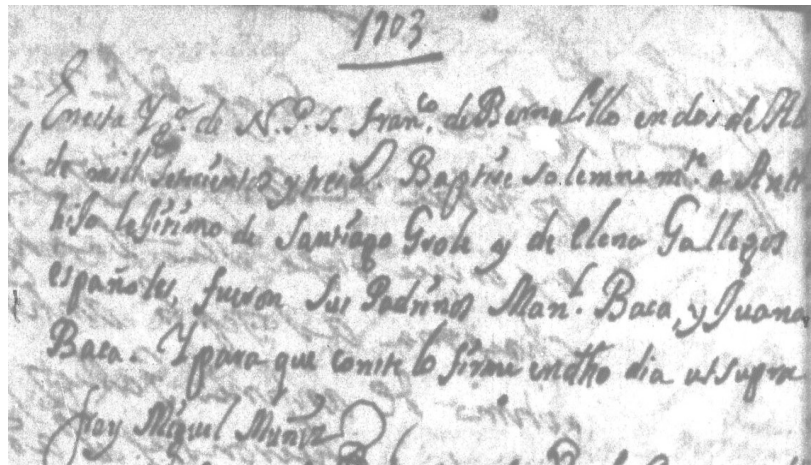 1703
En esta Yg.ª de N. P. S. Fran.co de Bernalillo en dos de Ab
l. de mill setecientos y tres. Baptise solemnem.te a Anto
hijo lefitimo de Santiago Grole y de Elena Gallegos
españoles, fueron sus Padrinos Man.l Baca, y Juana
Baca. Y para que conste lo firme en dho dia ut supra
fray Miguel Muñiz